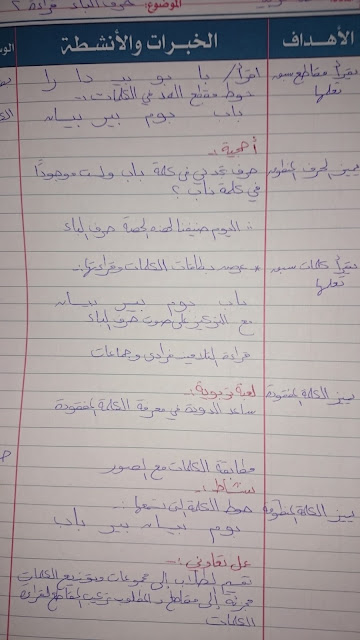 الموضوع: حرف الباء قراءة ٢
الأهداف
الخبرات والأنشطة
يقرأ مقاطع سبق تعلمها
اقرأ / با بو بي دا را
حوط مقطع المد في الكلمات :-
باب بوم بير بيبان
أحجية :-
يميز الحرف المنطوق
حرف تجدني في كلمة باب ولست موجودًا
في كلمة داب ؟
∴ اليوم ضيفنا لهذه الحصة حرف الباء
يقرأ كلمات سبق تعلمها
* عرض بطاقات الكلمات وقراءتها :-
باب بوم بير
مع التركيز على صوت حرف الباء
قراءة التلاميذ فرادى وجماعات
يميز الكلمة المفقودة
لعبة تربوية :-
ساعد الدودة في معرفة الكلمة المفقودة
مطابقة الكلمات مع الصور
نشاط :-
يميز الكلمة المنطوقة
حوط الكلمة التي تسمعها :-
بوم بير باب
عمل تعاوني :-
تقسيم الطلاب إلى مجموعات وتوزيع الكلمات
مجزئة إلى مقاطع والمطلوب تركيب المقاطع لقراءة
الكلمات